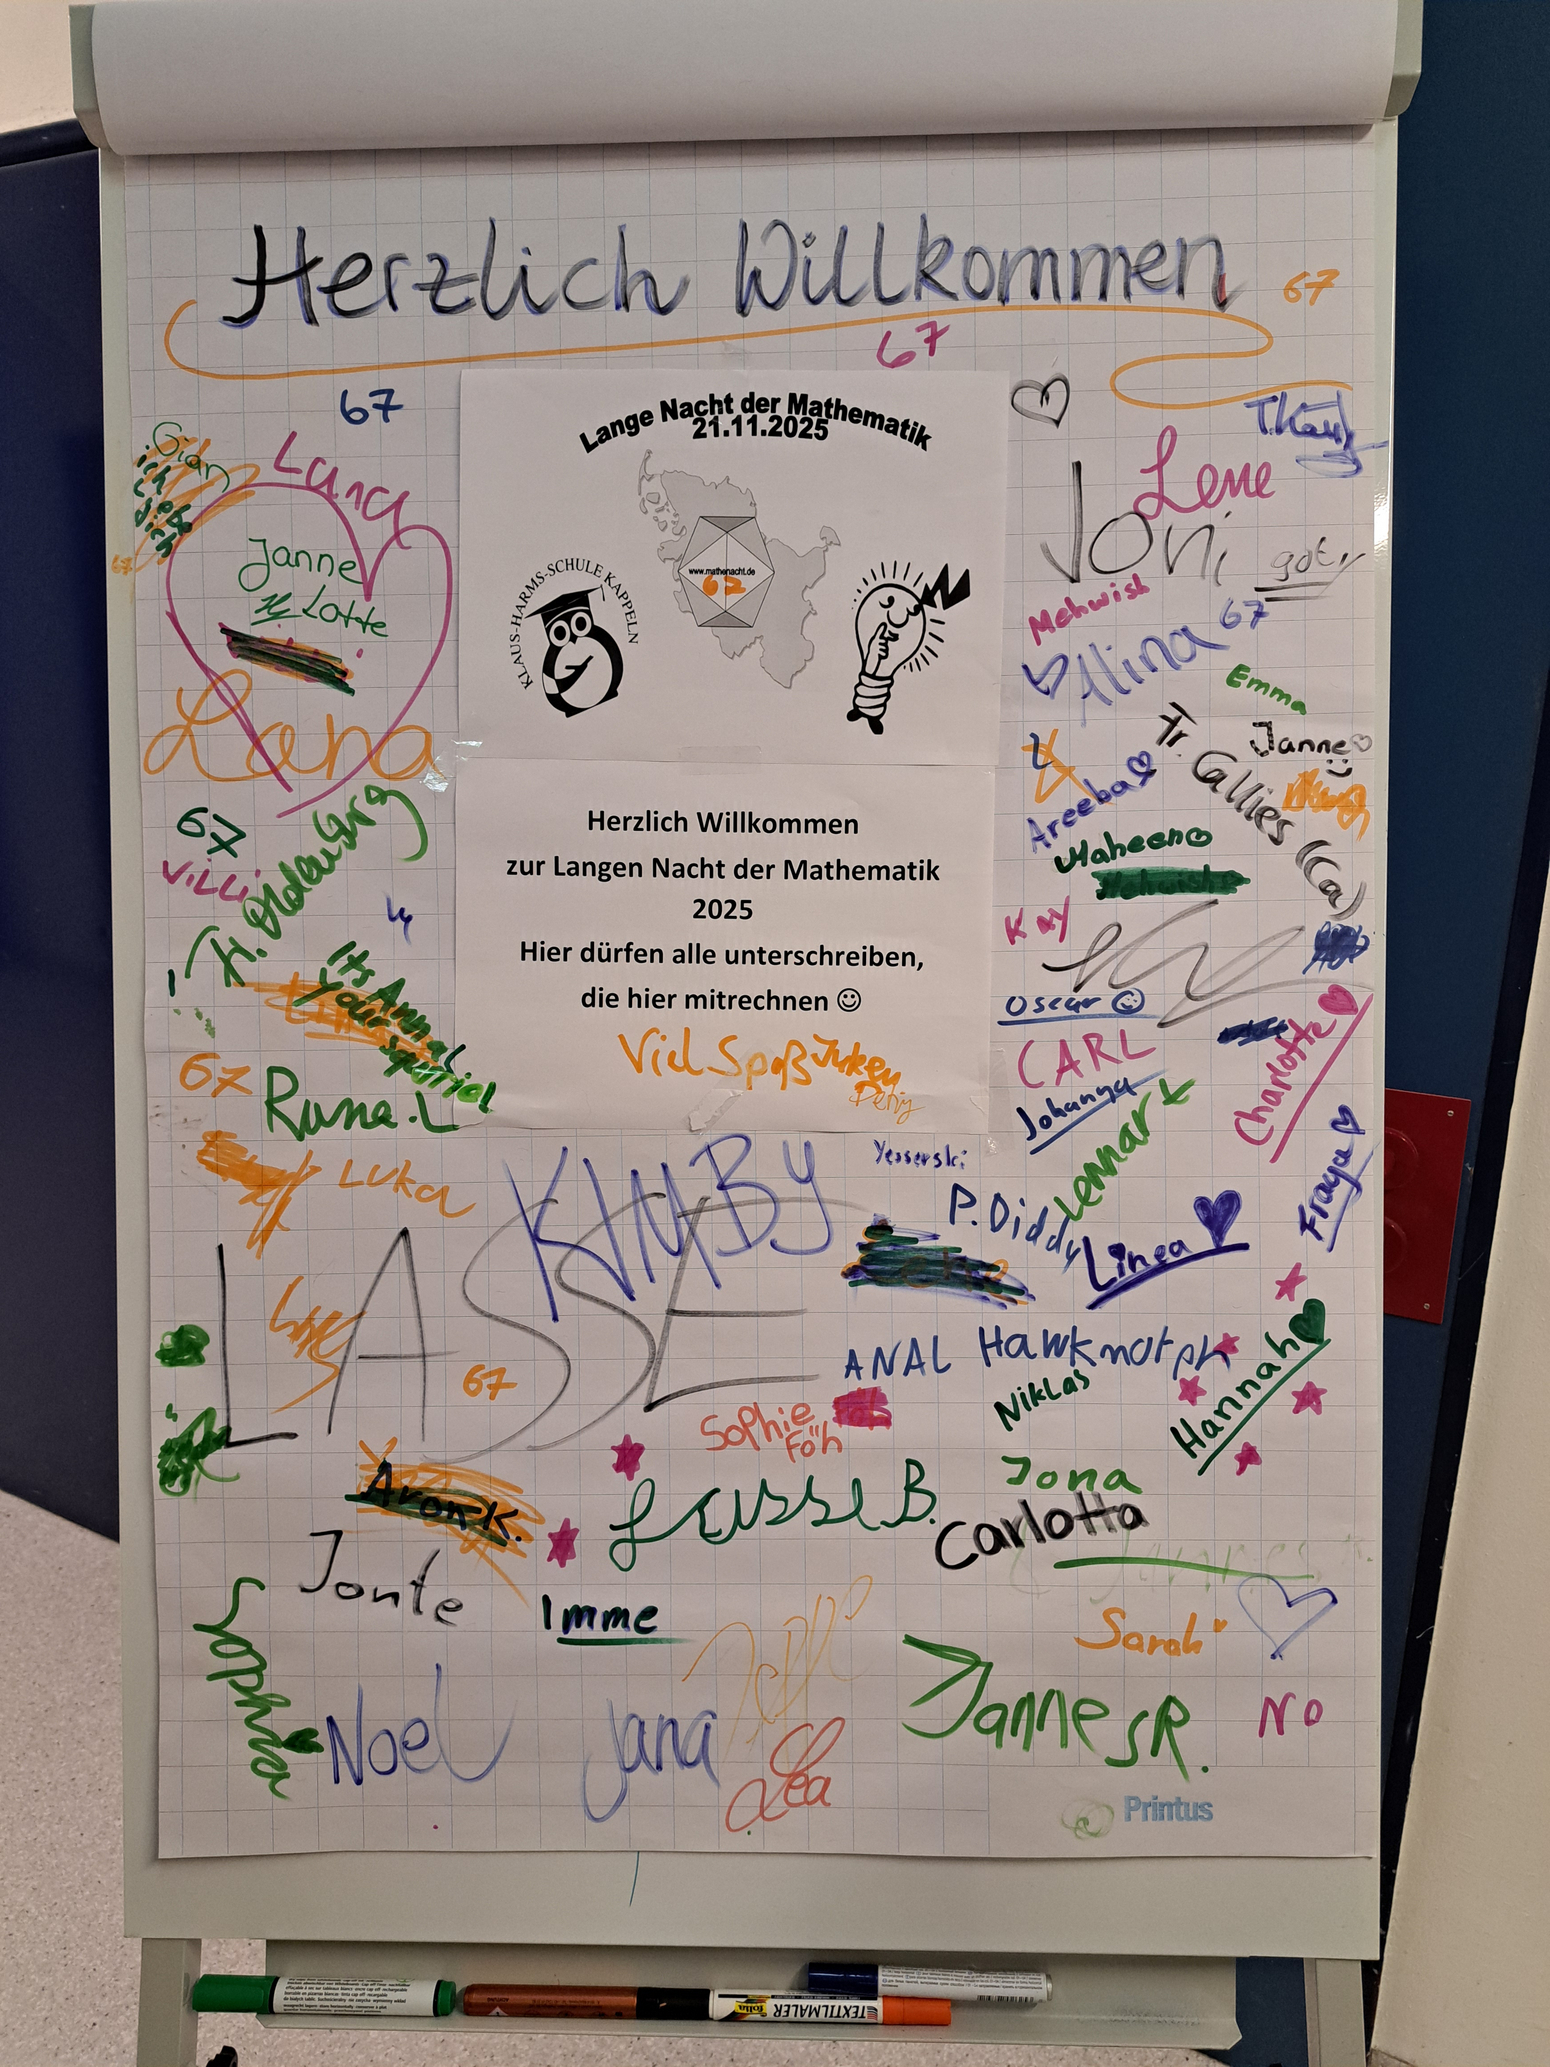 Herzlich Willkommen
67
67
67
Lange Nacht der Mathematik
21.11.2025
KLAUS-HARMS-SCHULE KAPPELN
www.mathenacht.de
67
Gian
ich liebe
dich
67
Lana
Janne
Lotte
Lana
Lene
Joni
got
Mehwish
67
Alina
Emma
Janne
Fr. Callies (Ca)
Areeba
Maheen
Mehwish
67
Villi
Fr. Oldenburg
Herzlich Willkommen
zur Langen Nacht der Mathematik
2025
Hier dürfen alle unterschreiben,
die hier mitrechnen ☺
Viel Spaß
Kay
Oscar
CARL
Johanna
Charlotte
Its Anna
your
67
Rune.L
Luka
KIMBY
Yesserski
P. Diddy
Lennart
Linea
Fraya
LASSE
67
ANAL Hawk
Niklas
Hannah
Sophie
Föh
Aron K.
Lasse B.
Jona
Carlotta
Jonte
Imme
Sarah
Sophia
Noel
Jana
Lea
Jannes R.
NO
Printus
TEXTILMALER
folia